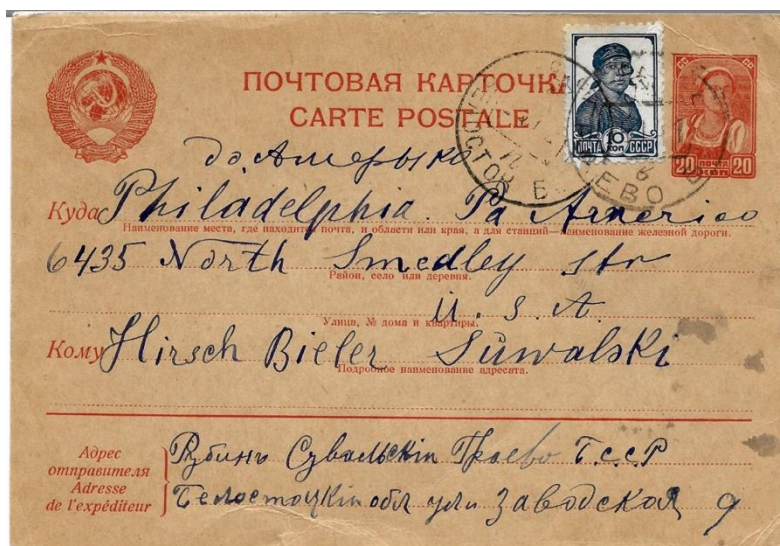 ПОЧТОВАЯ КАРТОЧКА
CARTE POSTALE
10 КОП
ПОЧТА СССР
20 ПОЧТА 20
до Америка
Куда Philadelphia. Pa America
Наименование места, где находится почта, и области или края, а для станций—наименование железной дороги.
6435 North Smedley str
Район, село или деревня.
U. S. A.
Улица, № дома и квартиры.
Кому Hirsch Bieler Suwalski
Подробное наименование адресата.
Адрес отправителя
Adresse de l'expéditeur
Рубинъ Сувальскiй Граево Б.с.с.Р
Белостоцкiй обл ули Заводская 9